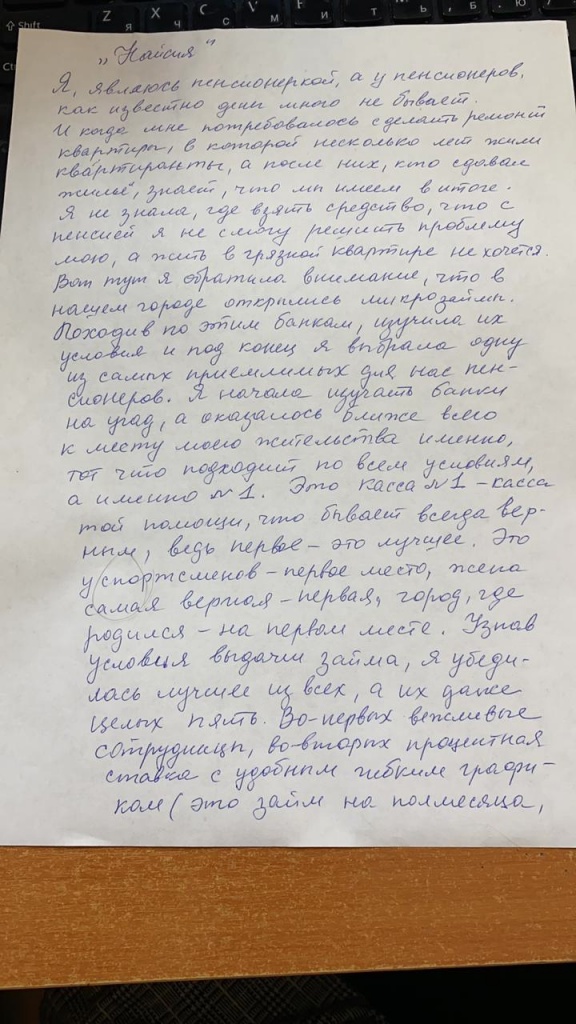 Shift
Z Я
X Ч
C С
V М
B И
N Т
M Ь
Б
Ю
Ctr
„Найсия"
Я, являюсь пенсионеркой, а у пенсионеров,
как известно денег много не бывает.
И когда мне потребовалось сделать ремонт
квартиры, в которой несколько лет жили
квартиранты, а после них, кто сдавал
жильё, знает, что мы имеем в итоге.
Я не знала, где взять средство, что с
пенсией я не смогу решить проблему
мою, а жить в грязной квартире не хочется.
Вот тут я обратила внимание, что в
нашем городе открылись микрозаймы.
Походив по этим банкам, изучила их
условия и под конец я выбрала одну
из самых приемлимых для нас пен-
сионеров. Я начала изучать банки
на угад, а оказалось ближе всего
к месту моего жительства именно,
тот что подходит по всем условиям,
а именно №1. Это касса №1 - касса
той помощи, что бывает всегда вер-
ным, ведь первое - это лучшее. Это
у спортсменов - первое место, жена
самая верная - первая, город, где
родился - на первом месте. Узнав
условья выдачи займа, я убеди-
лась лучшее из всех, а их даже
целых пять. Во-первых вежливые
сотрудницы, во-вторых процентная
ставка с удобным гибким графи-
ком (это займ на полмесяца,